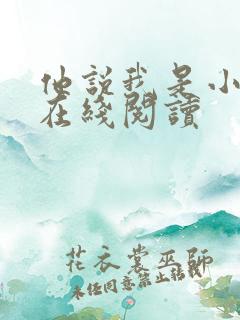 他說我是小
在綫閱讀
花衣裳巫師
未任同意禁止轉載